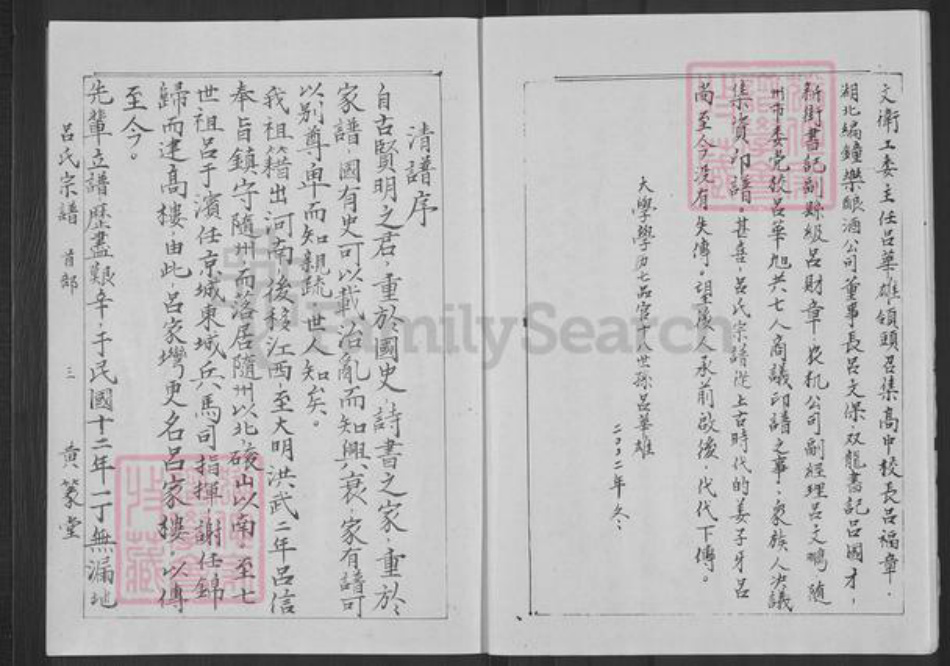 文衛工委主任吕華雄領頭召集高中校長吕福章．
湖北編鐘樂酿酒公司董事長吕文保，双龍書記吕國才，
新街書記副縣級吕財章，农机公司副經理吕文鵬，随
州市委党校吕華旭共七人商議印譜之事，家族人决議
集資印譜，甚喜，吕氏宗譜從上古時代的姜子牙吕
尚至今没有失傳。望後人承前啟後，代代下傳。
大學學历七品官十八世孫吕華雄
二〇〇二年冬
清譜序
自古賢明之君，重於國史，詩書之家，重於
家譜，國有史可以載治亂而知興衰，家有譜可
以别尊卑而知親疏，世人知矣。
我祖籍出河南，後移江西，至大明洪武二年吕信
奉旨鎮守隨州，而落居隨州以北，磙山以南，至七
世祖吕于濱任京城東城兵馬司指揮，謝任錦
歸而建高樓，由此，吕家塆更名吕家樓，以傳
至今。
先輩立譜歷盡艱辛，于民國十二年一丁無漏地
吕氏宗譜 首部 三 黄篆堂
FamilySearch